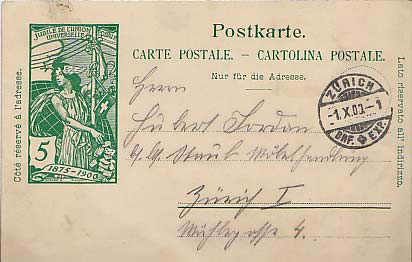 JUBILÉ DE L'UNION
POSTALE
UNIVERSELLE
5
1875-1900
Postkarte.
CARTE POSTALE. – CARTOLINA POSTALE.
Nur für die Adresse.
Côté réservé à l'adresse.
Lato riservato all' indirizzo.
ZÜRICH
-1.X.00.-1
BRF. EXP.
Herrn
Hubert Jordan
Staub Möbelhandlung
Zürich I
Mühlegasse 4.